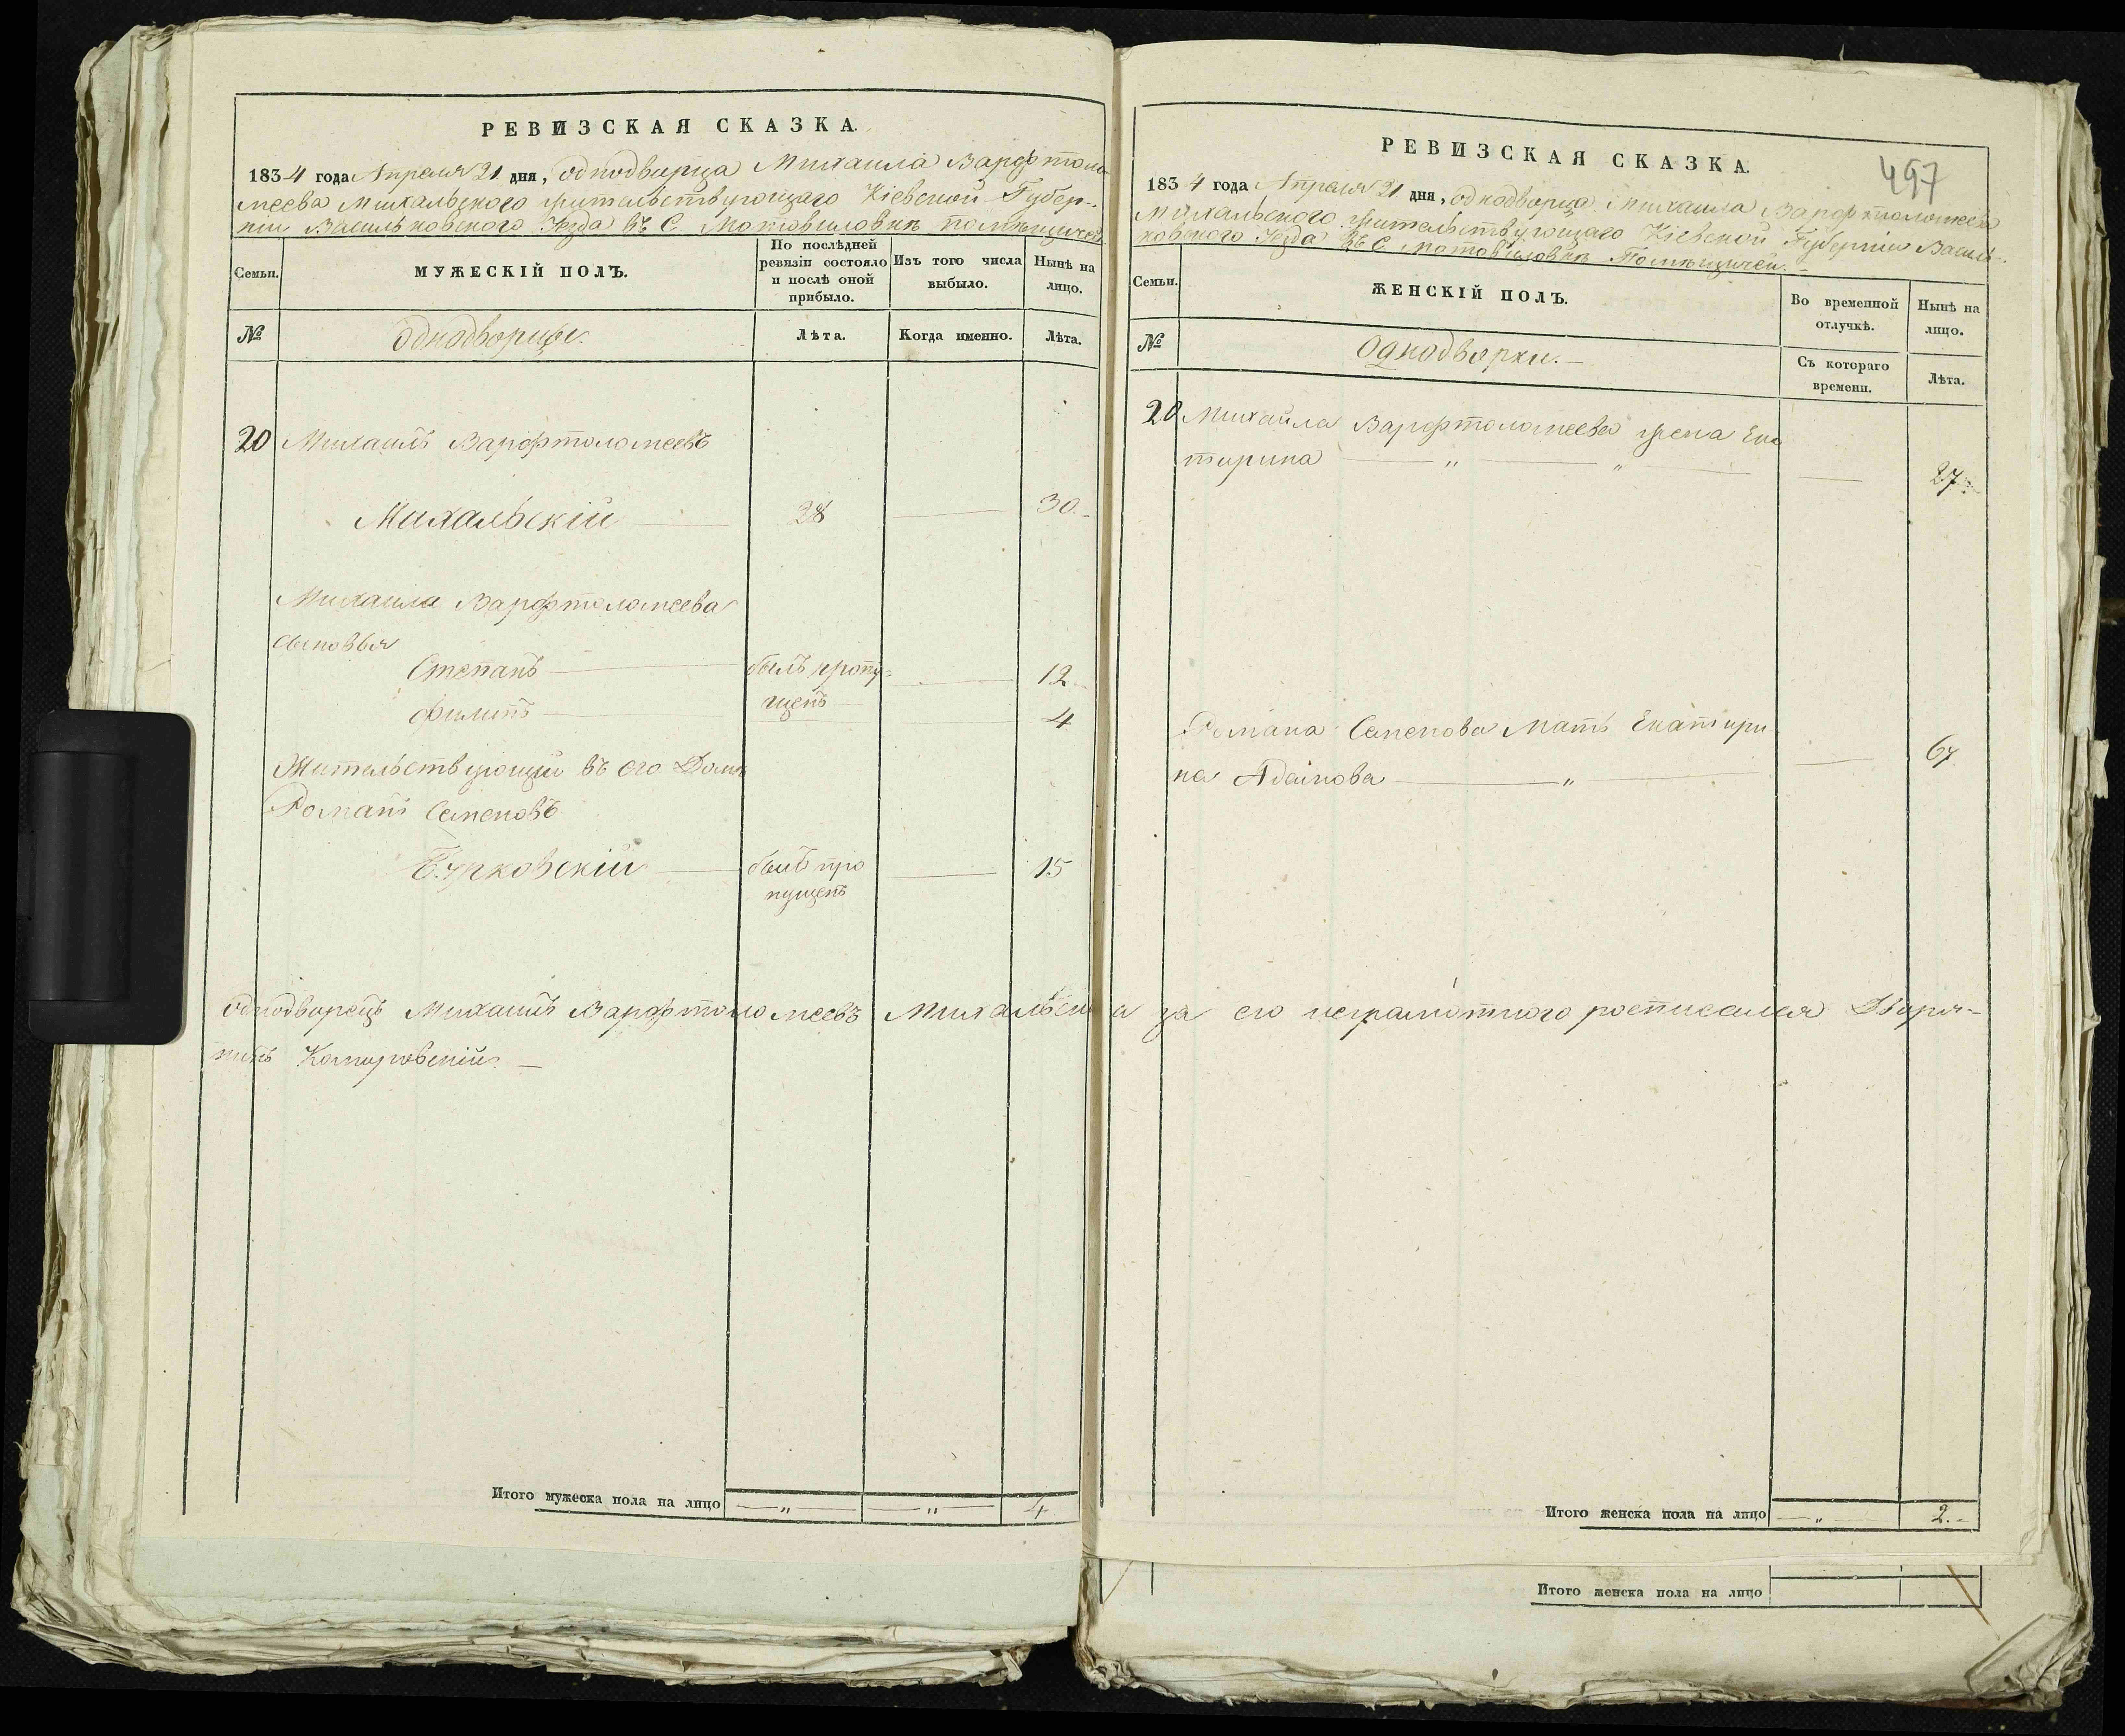 РЕВИЗСКАЯ СКАЗКА.
1834 года Апреля 21 дня, однодворца Михаила Варфтоло-
меева Михальского жительствующаго Кіевской Губер-
ніи Васильковского Уезда въ С. Мотовиловкѣ помѣщичей
Семьи.
МУЖЕСКІЙ ПОЛЪ.
По послѣдней ревизіи состояло и послѣ оной прибыло.
Изъ того числа выбыло.
Нынѣ на лицо.
№
Однодворцы.
Лѣта.
Когда именно.
Лѣта.
20 Михаилъ Варфтоломеевъ
Михальскій 28 30.
Михаила Варфтоломеева
сыновья
Степанъ былъ пропу= 12
щенъ
Филипъ 4
Жительствующій въ его Домѣ
Романъ Семеновъ
былъ про 15
пущенъ
однодворецъ Михаилъ Варфтоломеевъ а за его неграмотного росписался Дворя=
нинъ
Итого мужеска пола на лицо " " 4
497
РЕВИЗСКАЯ СКАЗКА.
1834 года Апреля 21 дня, однодворца Михаила Варфтоломеева
Михальского жительствующаго Кіевской Губерніи Василь-
ковского Уезда въ С. Мотовиловкѣ Помѣщичей.
Семьи.
ЖЕНСКІЙ ПОЛЪ.
Во временной отлучкѣ.
Нынѣ на лицо.
№
Однодворки.
Съ котораго времени.
Лѣта.
20 Михаила Варфтоломеева жена Ека
тирина " " 27.
Романа Семенова Мать Екатири
на Адамова " 67
Итого женска пола на лицо " 2.
Итого женска пола на лицо